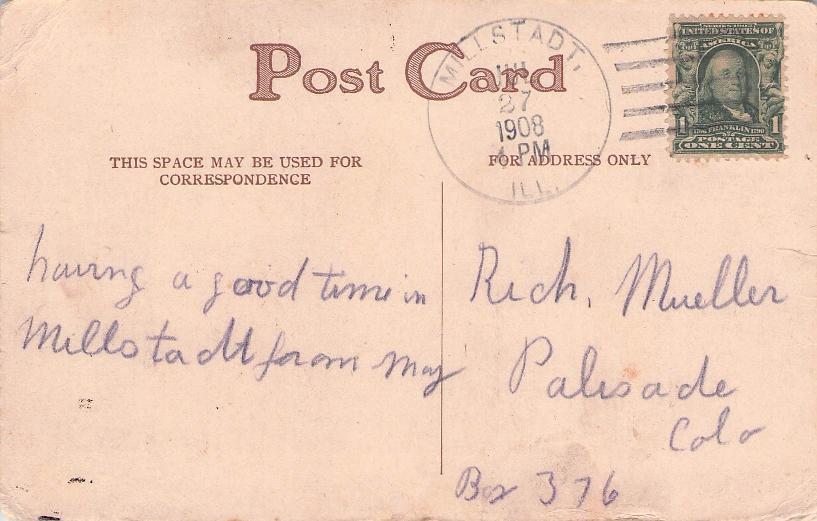 Post Card
MILLSTADT,
27
1908
PM
ILL.
SERIES 1902
UNITED STATES OF
AMERICA
1 FRANKLIN 1
POSTAGE
ONE CENT
THIS SPACE MAY BE USED FOR
CORRESPONDENCE
FOR ADDRESS ONLY
having a good time in
Millstadt from May
Rich. Mueller
Palisade
Colo
Box 376